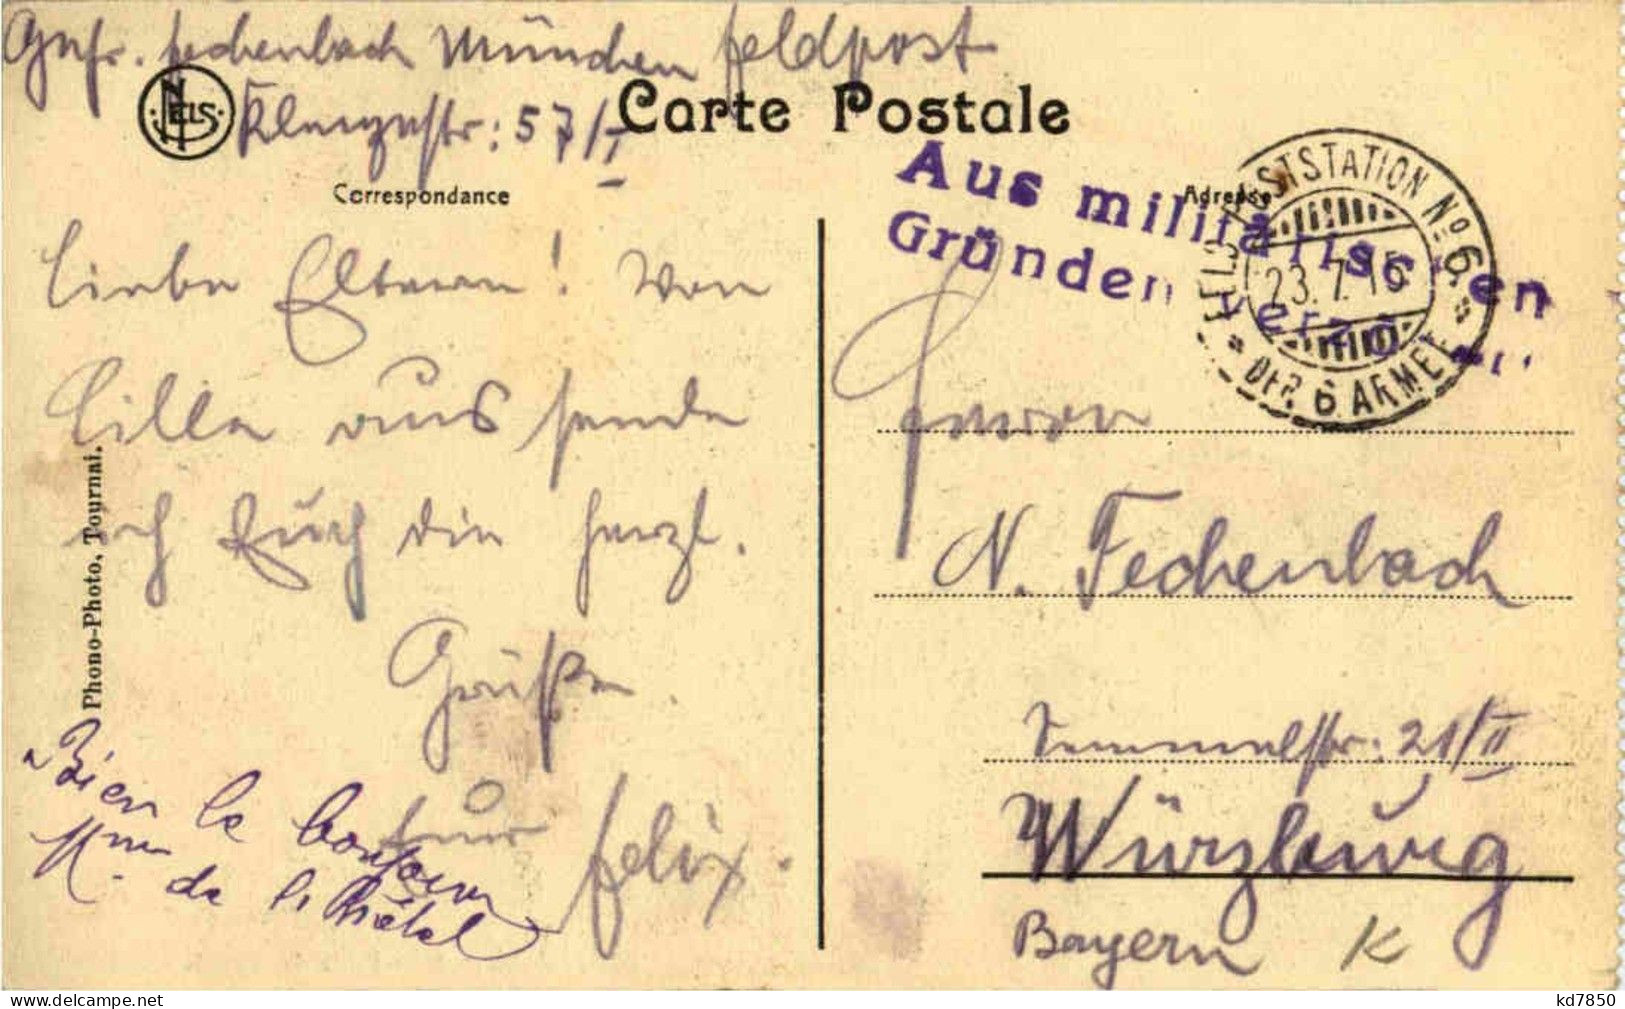 Gefr. Fechenbach München Feldpost
NELS
57/I
Carte Postale
Correspondance
Adresse
Aus militärischen
Gründen verzögert
POSTSTATION No 6
23.7.15
DER 6 ARMEE
Liebe Eltern! Von
Lille aus sende
ich Euch die herzl.
Grüße.
Euer Felix.
Bien le bonjour
Herrn
N. Fechenbach
Semmelstr: 21/II
Würzburg
Bayern K
Phono-Photo, Tournai.
kd7850